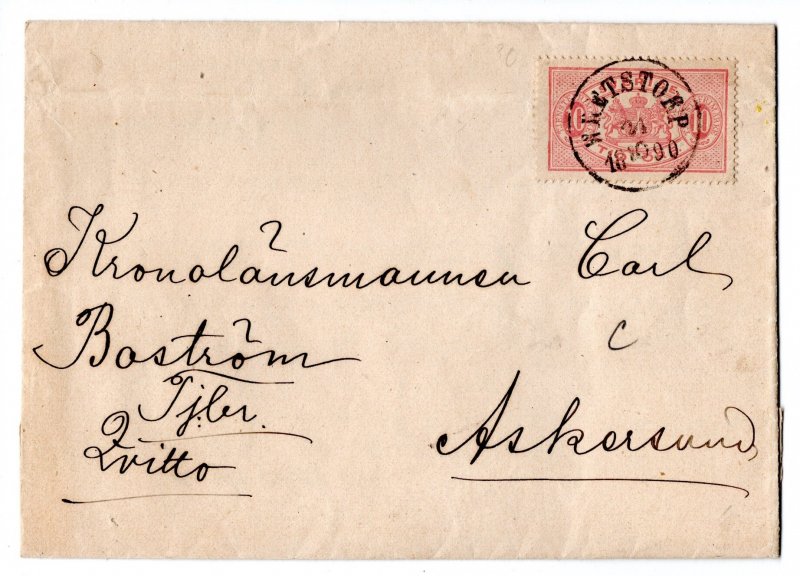 WRETSTORP
18 90
10 10
Kronolänsmannen Carl
Boström
Tjbr.
Qvitto
C
Askersund